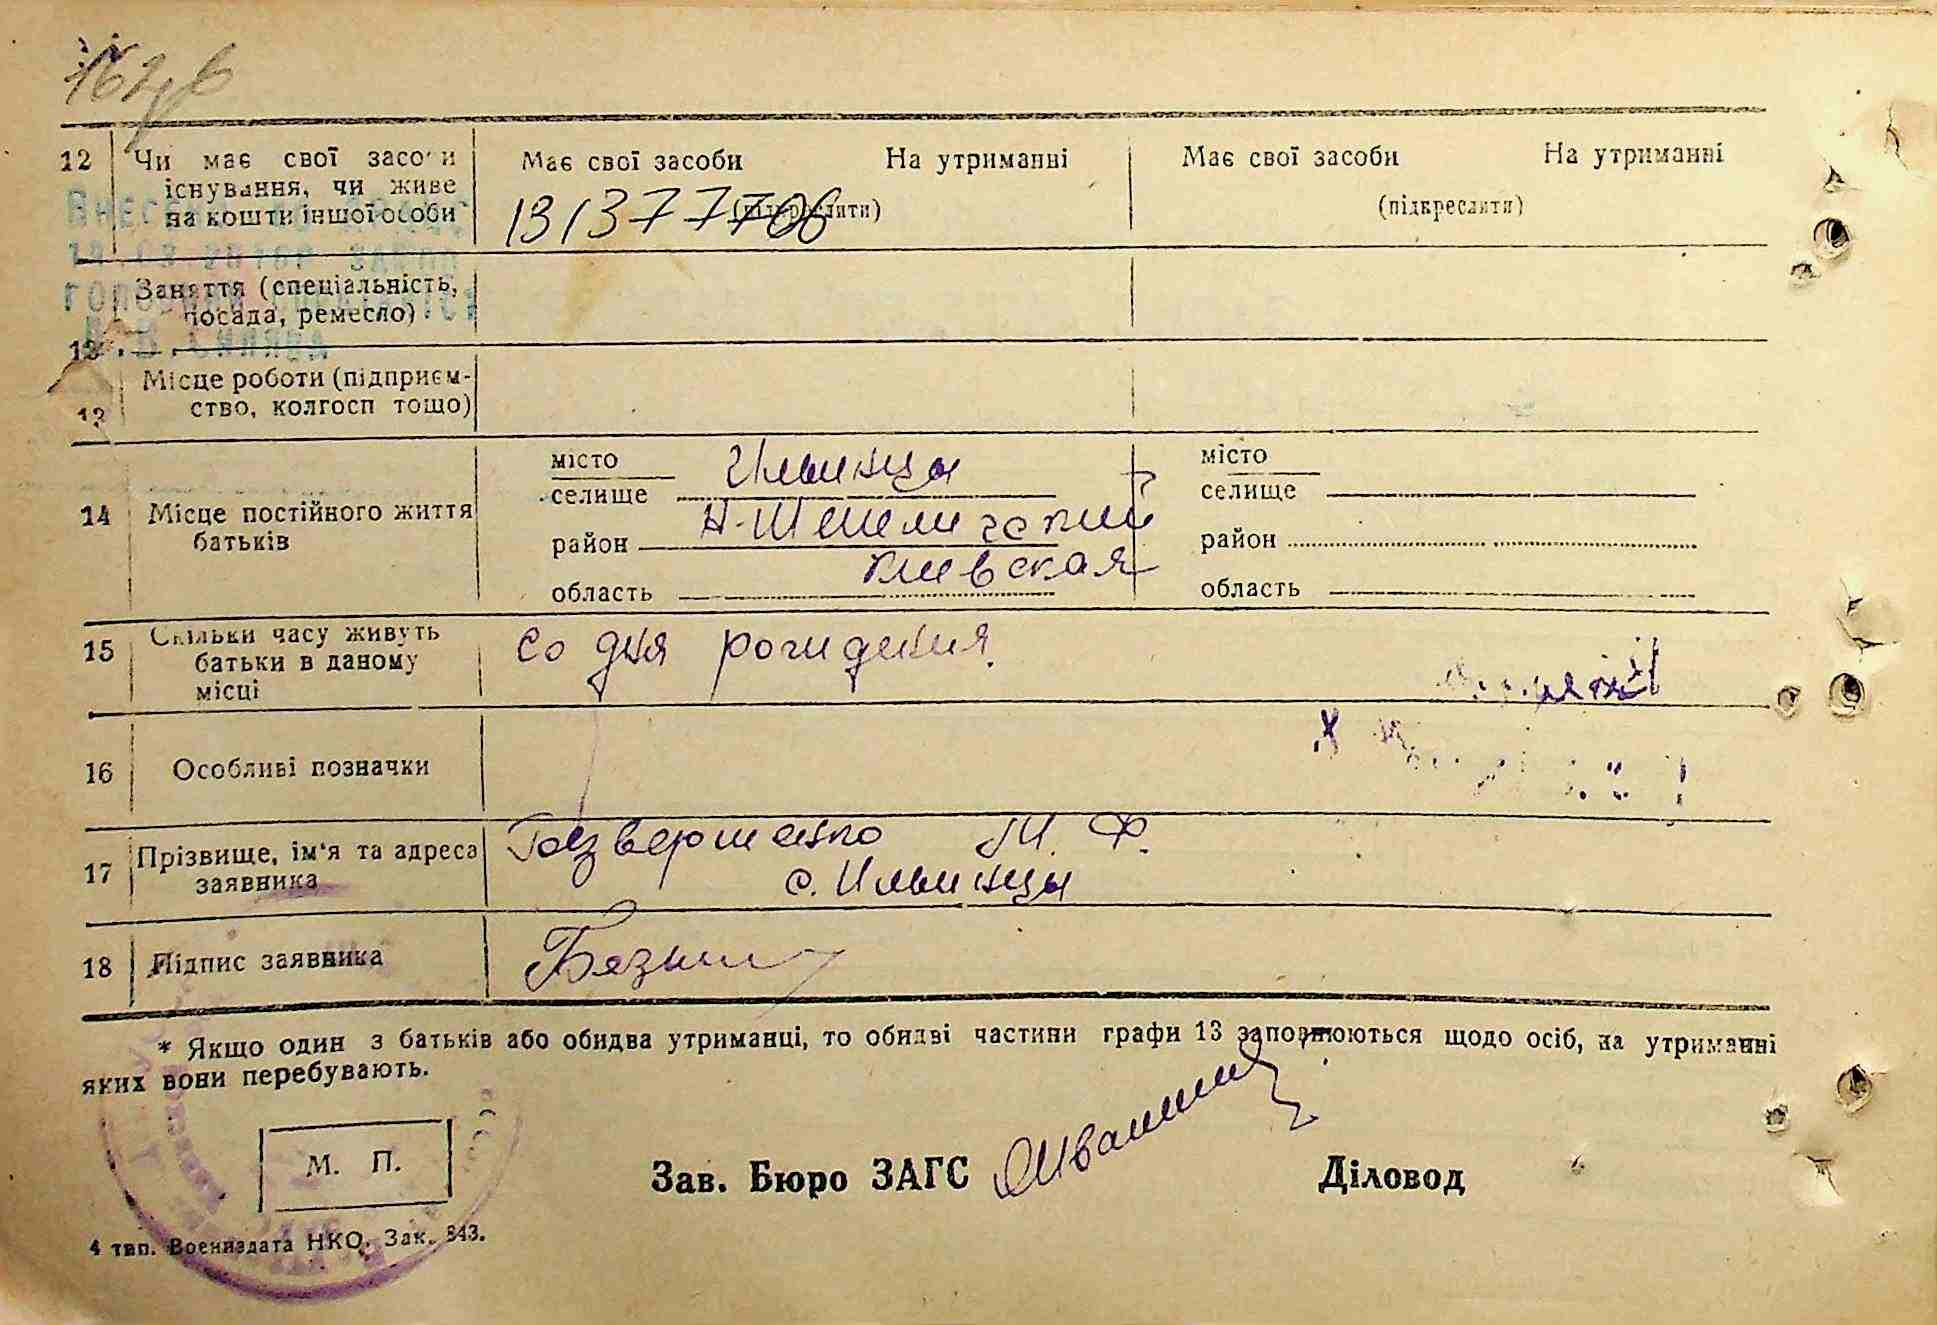 12 Чи має свої засоби Має свої засоби На утриманні Має свої засоби На утриманні
існування, чи живе
на кошти іншої особи (підкреслити) (підкреслити)
131377706
Заняття (спеціальність,
посада, ремесло)
13
Місце роботи (підприєм-
ство, колгосп тощо)
13
місто Ильинцы місто
селище селище
14 Місце постійного життя
батьків
район Н-Шепеличский район
область Киевская область
15 Скільки часу живуть со дня рождения.
батьки в даному
місці
16 Особливі позначки
17 Прізвище, ім'я та адреса М. Ф.
заявника с. Ильинцы
18 Підпис заявника
* Якщо один з батьків або обидва утриманці, то обидві частини графи 13 заповнюються щодо осіб, на утриманні
яких вони перебувають.
М. П.
Зав. Бюро ЗАГС Діловод
4 тип. Воениздата НКО. Зак. 843.